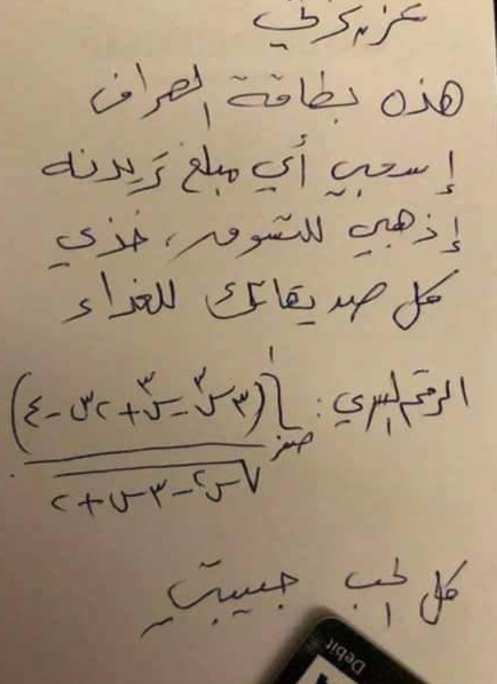 عزيزتي
هذه بطاقة الصراف
إسحبي أي مبلغ تريدنه
إذهبي للتسوق، خذي
كل صديقاتك للغداء
الرقم السري: ∫ صفر ١ (٣س^٣ - س^٣ + ٢س - ٤) / √(س^٢ - ٣س + ٢)
كل الحب حبيبتي
Debit